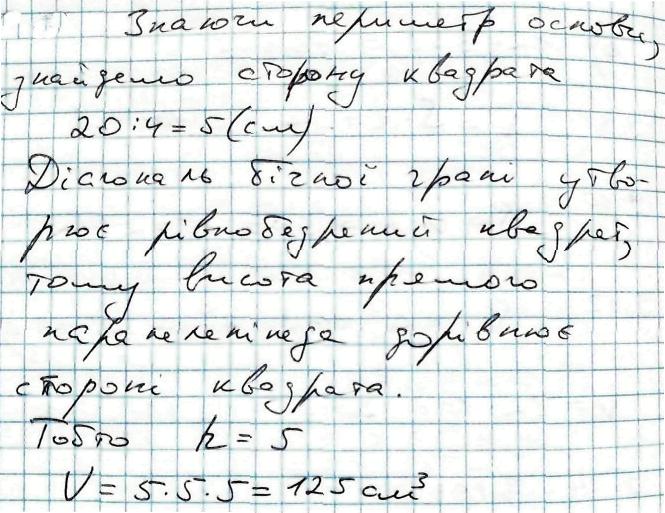 Знаючи периметр основи,
знайдемо сторону квадрата
20:4=5(см)
Діагональ бічної грані утво-
рює рівнобедрений квадрат,
тому висота прямого
паралелепіпеда дорівнює
стороні квадрата.
Тобто h = 5
V = 5·5·5 = 125 см³